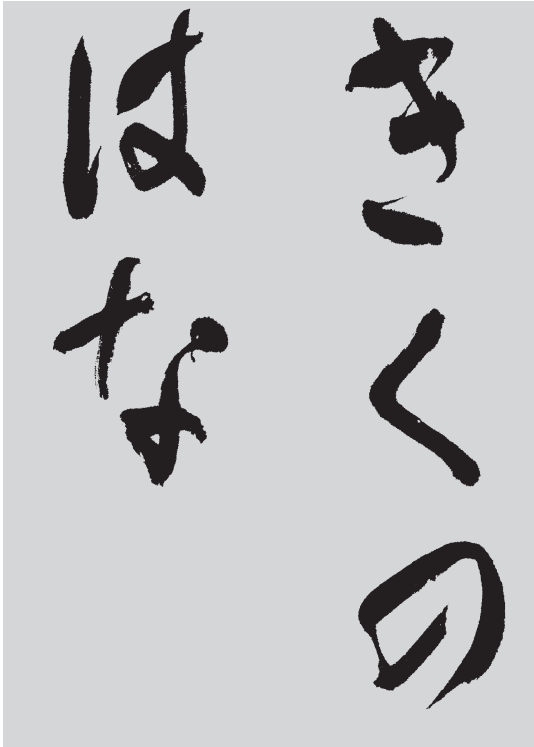 きくの
はな